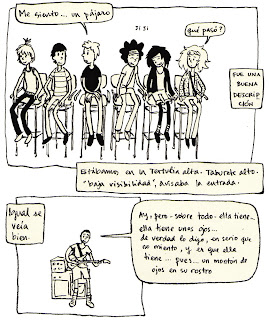 Me siento... un pájaro
JI JI
¿qué pasó?
FUE UNA
BUENA
DESCRIP
CIÓN
Estábamos en la Tertulia alta. Taburete alto.
"baja visibilidad", avisaba la entrada.
Igual se
veía
bien.
Ay, pero, sobre todo, ella tiene...
ella tiene unos ojos...
de verdad lo digo, en serio que
no miento, y es que ella
tiene... pues... un montón de
ojos en su rostro